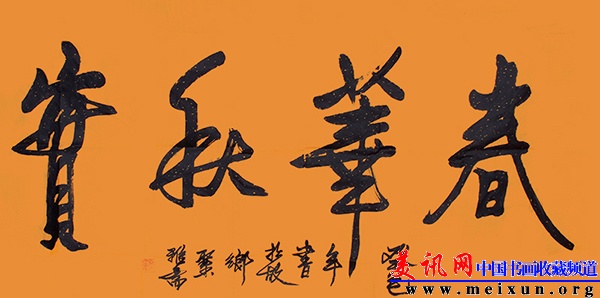 春華秋實
年書於故鄉聚雅斋
美讯网 中国书画收藏频道
www.meixun.org